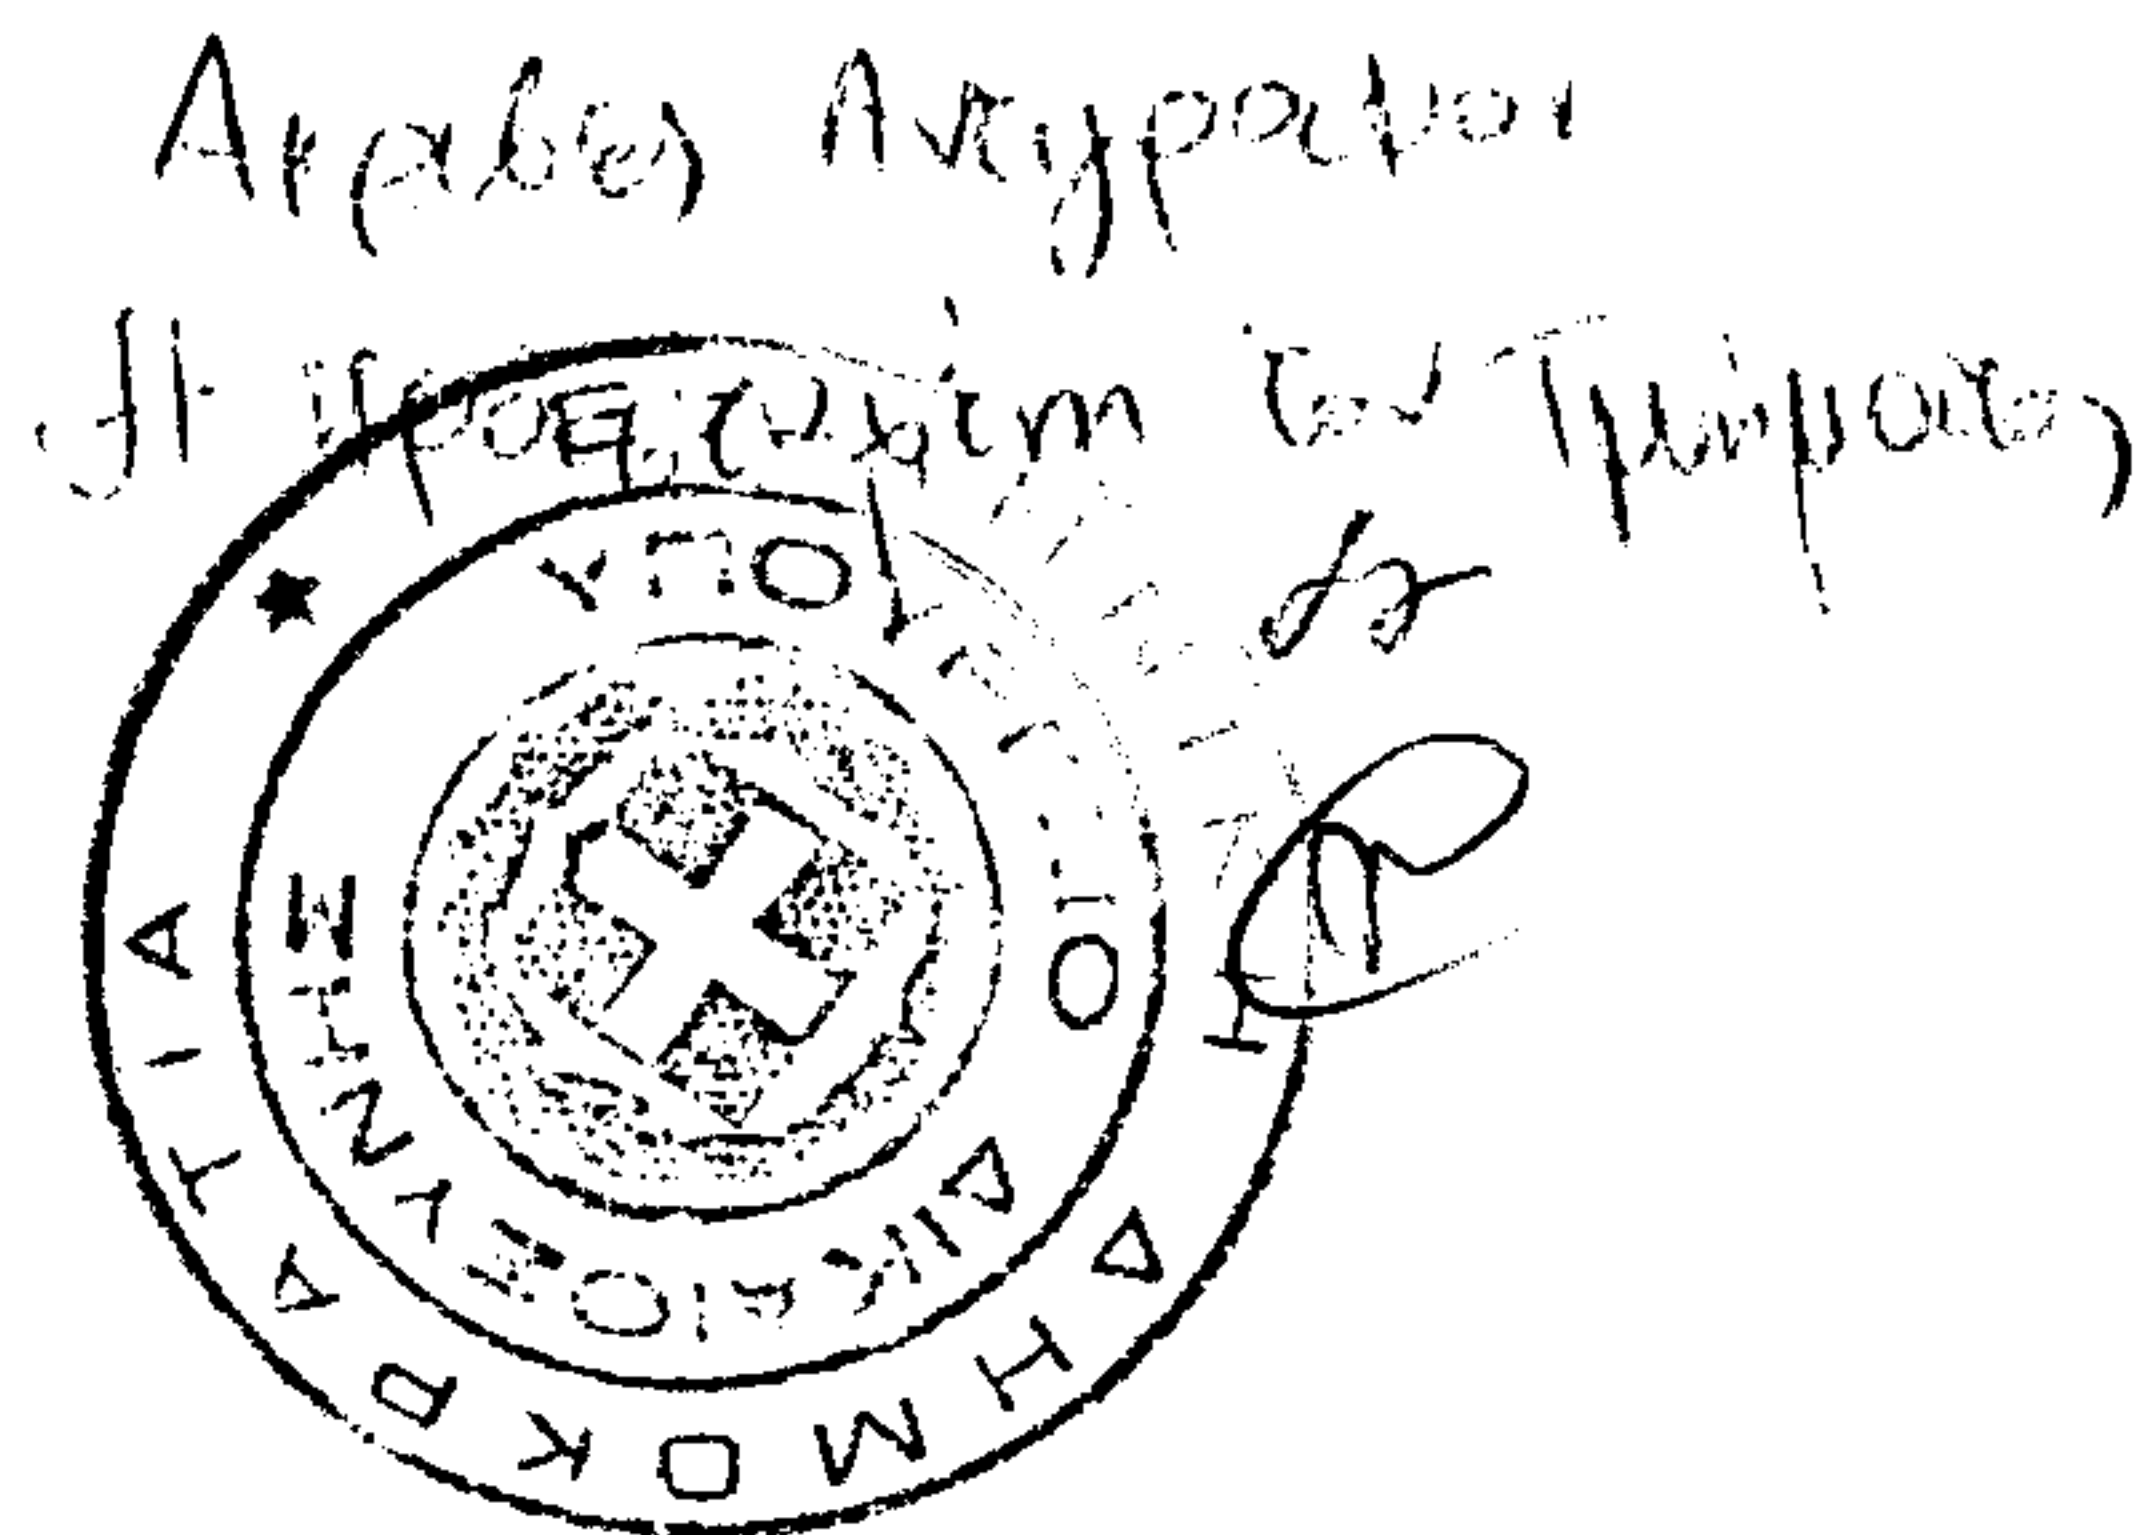 Ακριβές Αντίγραφον
Η Προϊσταμένη του Τμήματος
ΕΛΛΗΝΙΚΗ ΔΗΜΟΚΡΑΤΙΑ
ΥΠΟΥΡΓΕΙΟ ΔΙΚΑΙΟΣΥΝΗΣ